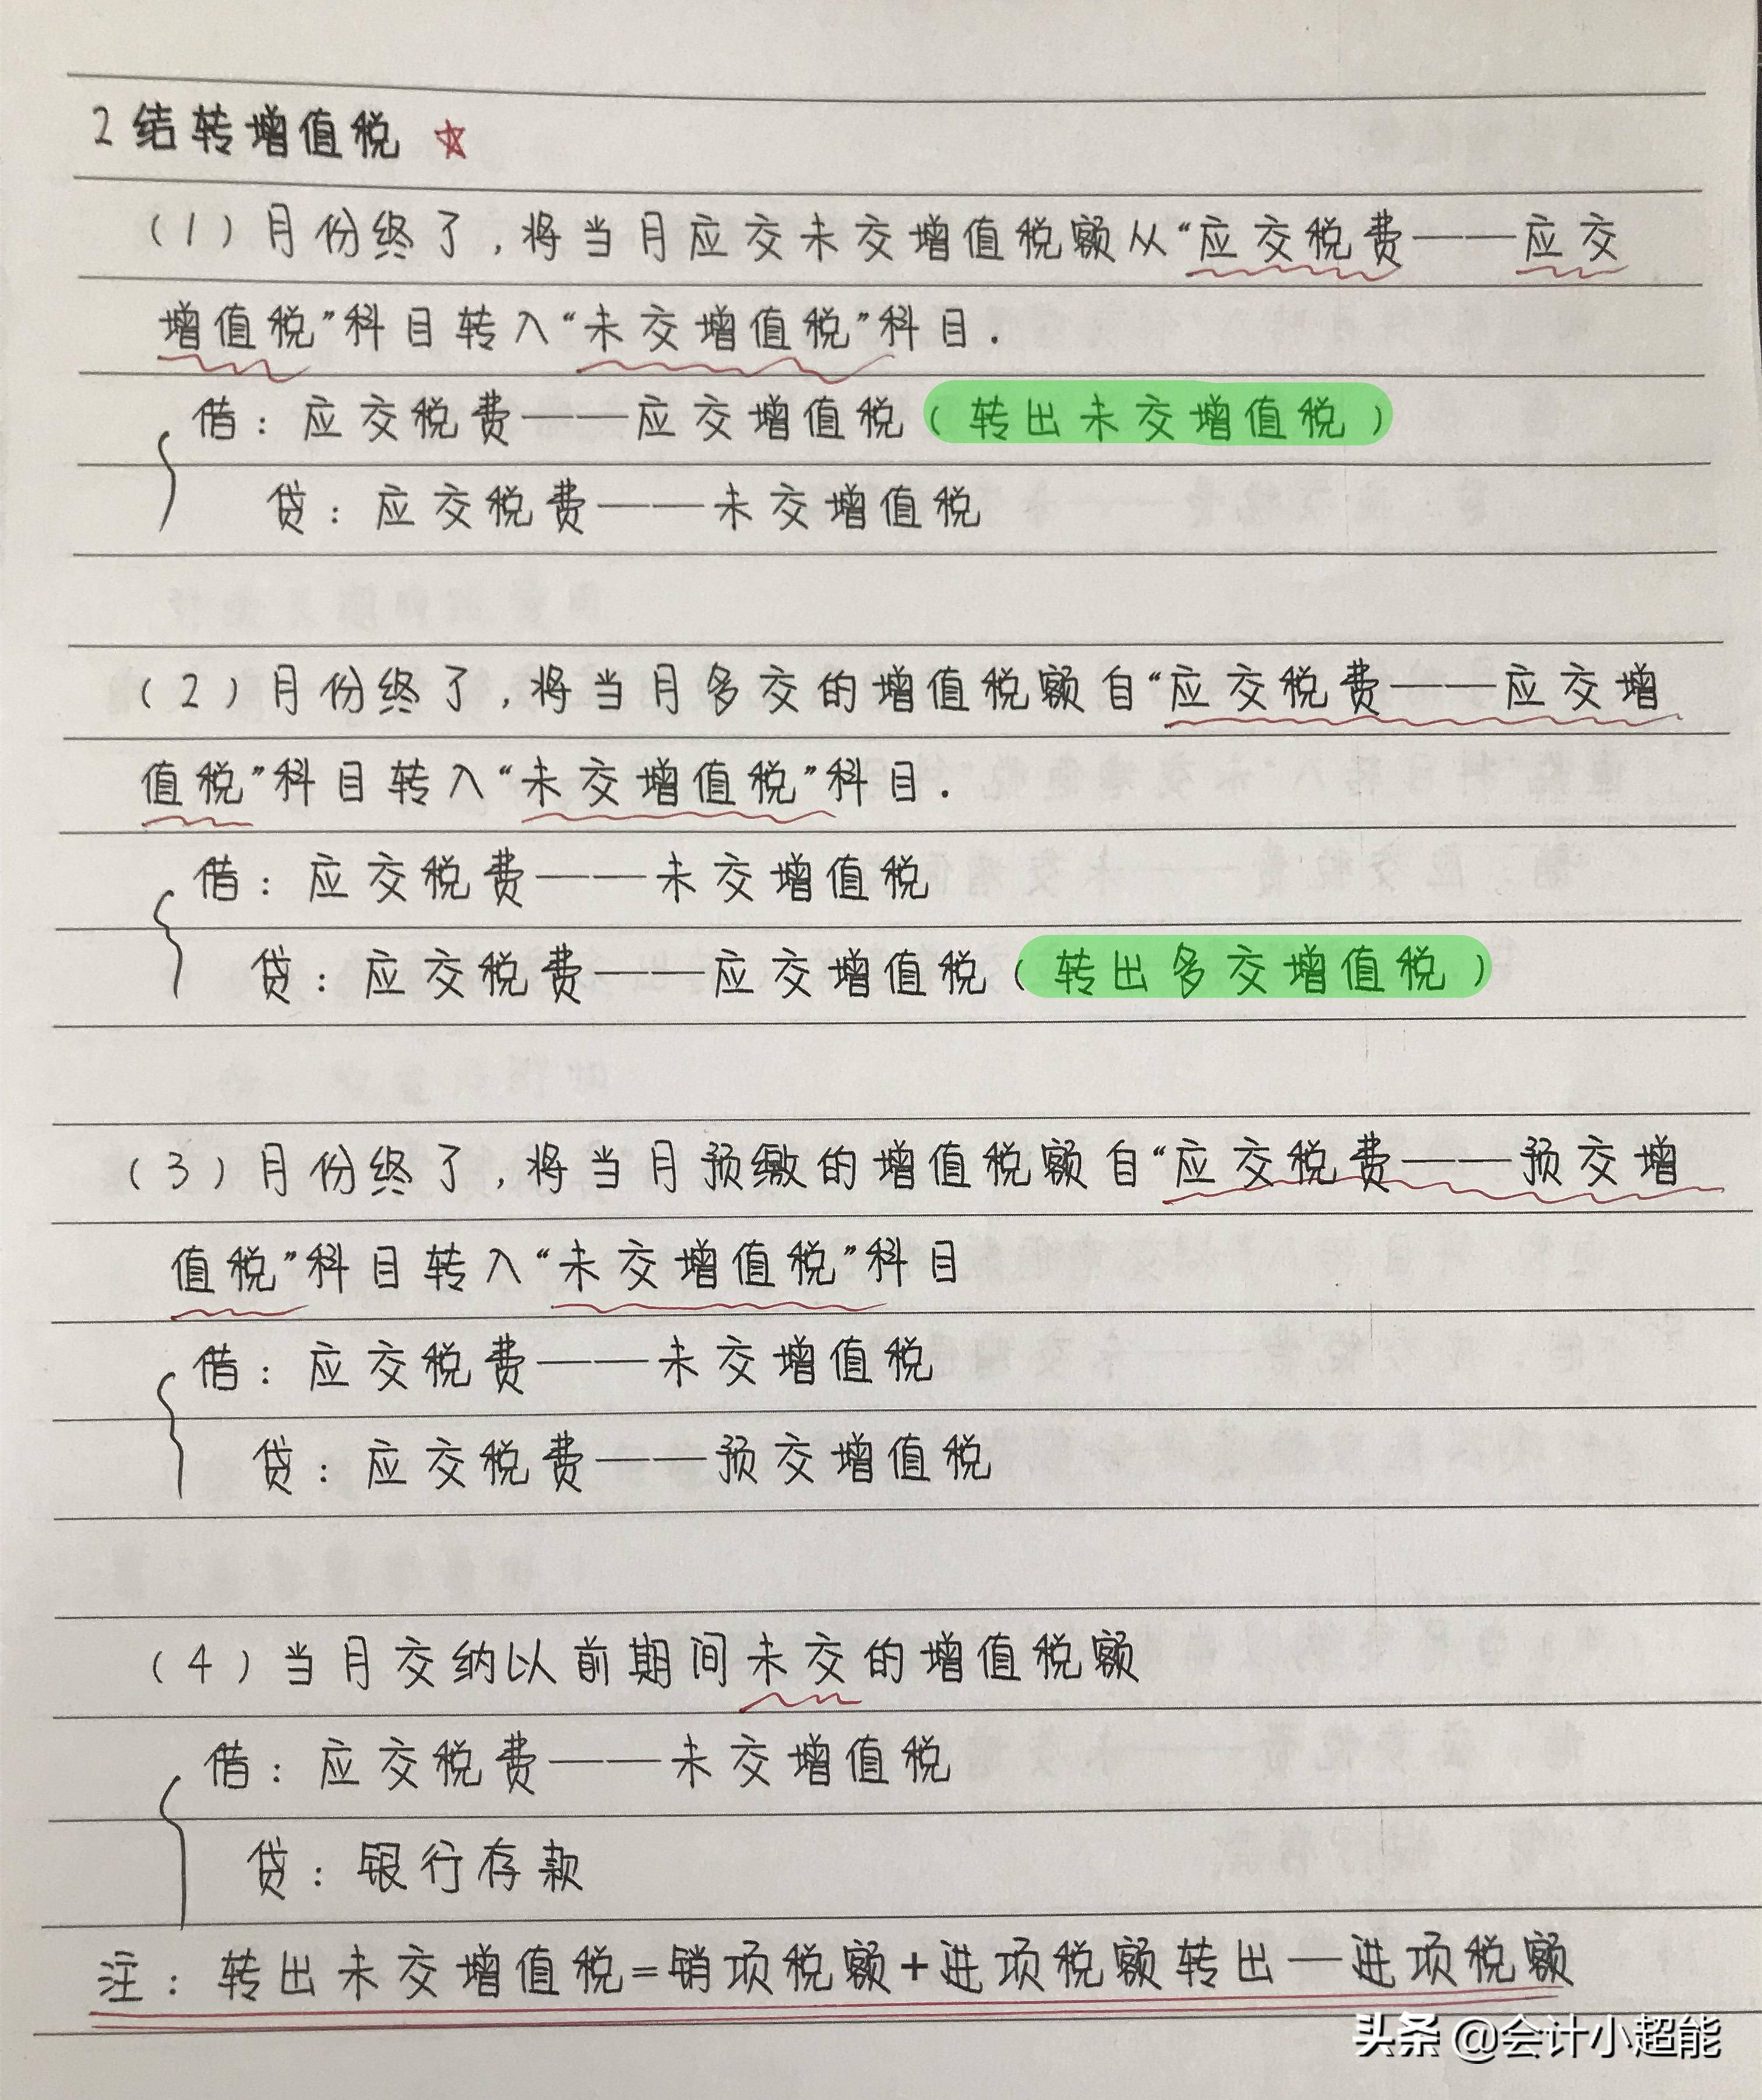 2 结转增值税
(1) 月份终了,将当月应交未交增值税额从“应交税费——应交
增值税”科目转入“未交增值税”科目.
借：应交税费——应交增值税(转出未交增值税)
贷：应交税费——未交增值税
(2) 月份终了,将当月多交的增值税额自“应交税费——应交增
值税”科目转入“未交增值税”科目.
借：应交税费——未交增值税
贷：应交税费——应交增值税(转出多交增值税)
(3) 月份终了,将当月预缴的增值税额自“应交税费——预交增
值税”科目转入“未交增值税”科目
借：应交税费——未交增值税
贷：应交税费——预交增值税
(4) 当月交纳以前期间未交的增值税额
借：应交税费——未交增值税
贷：银行存款
注：转出未交增值税=销项税额+进项税额转出—进项税额
头条 @会计小超能